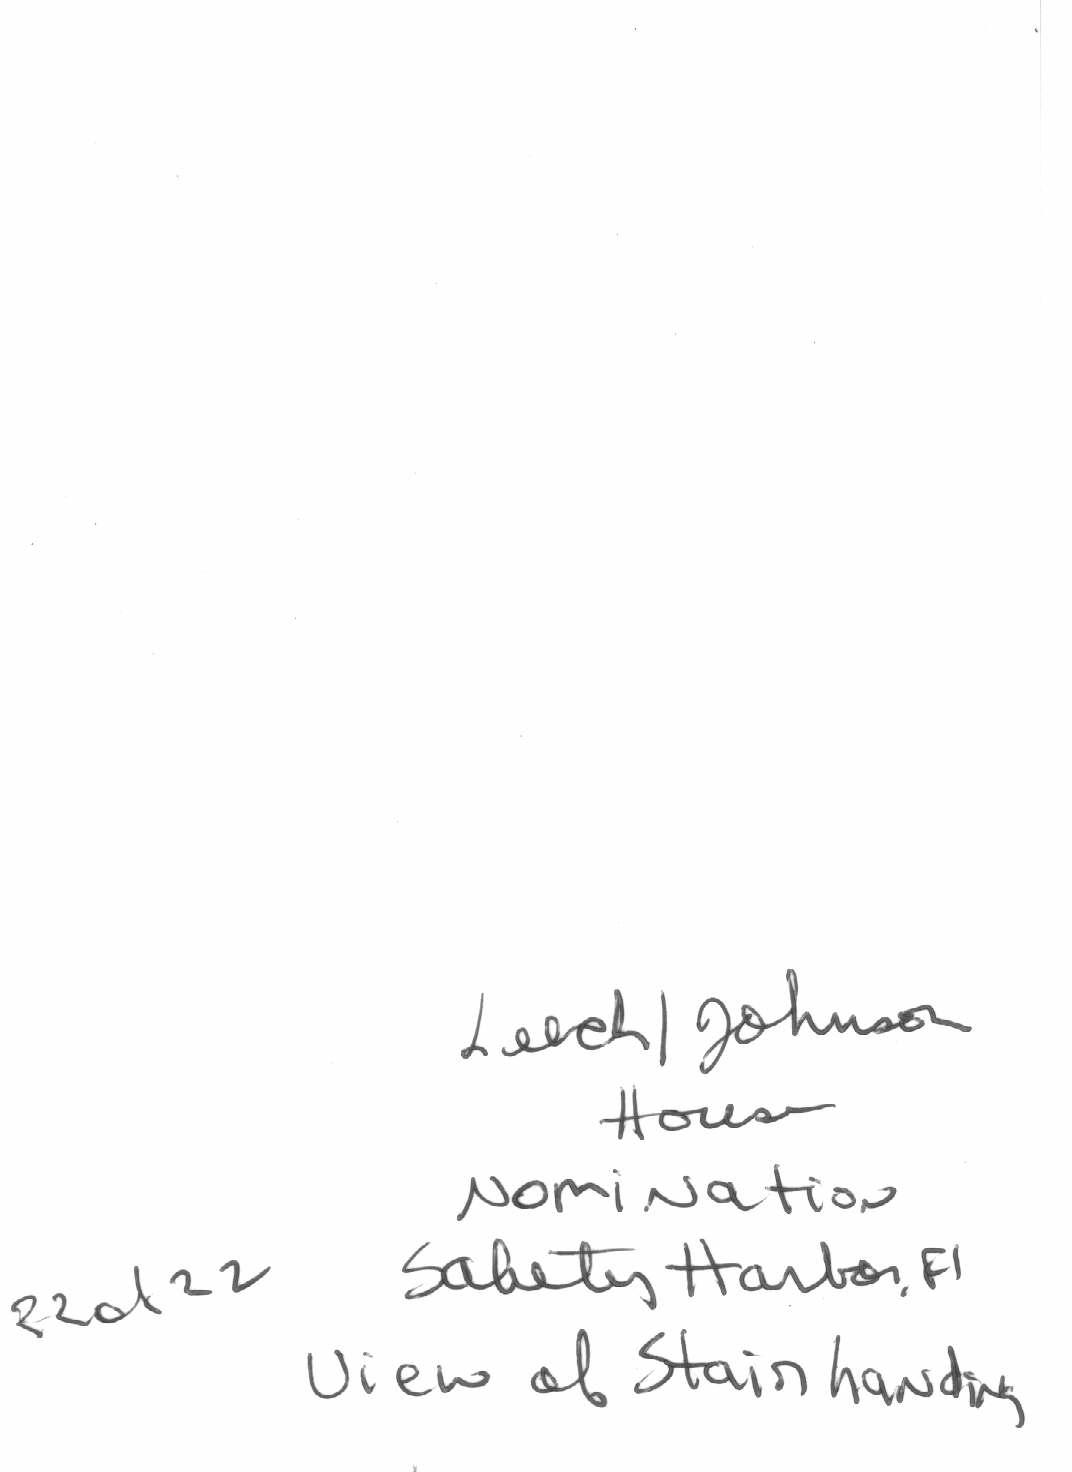 Leech/Johnson
House
Nomination
Safety Harbor, Fl
22 of 22
View of Stair Landing